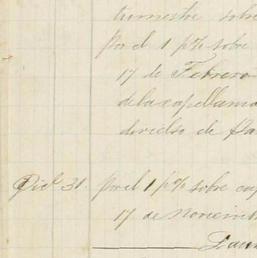 trimestre sobre
Por el 1 p% sobre
17 de Febrero
de la capellania
dividso de
Dic.e 31. Por el 1 p% sobre cap
17 de Noviemb